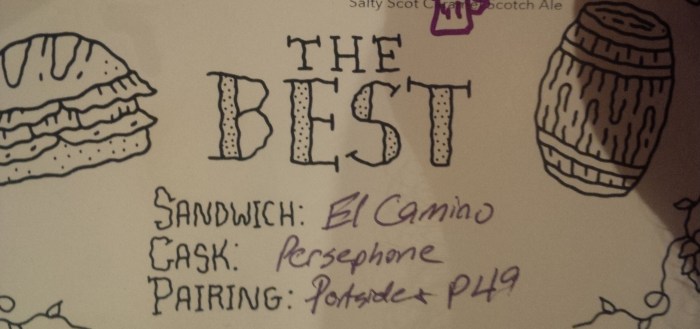 Salty Scot Caramel Scotch Ale
THE
BEST
SANDWICH: El Camino
CASK: Persephone
PAIRING: Portside + P49